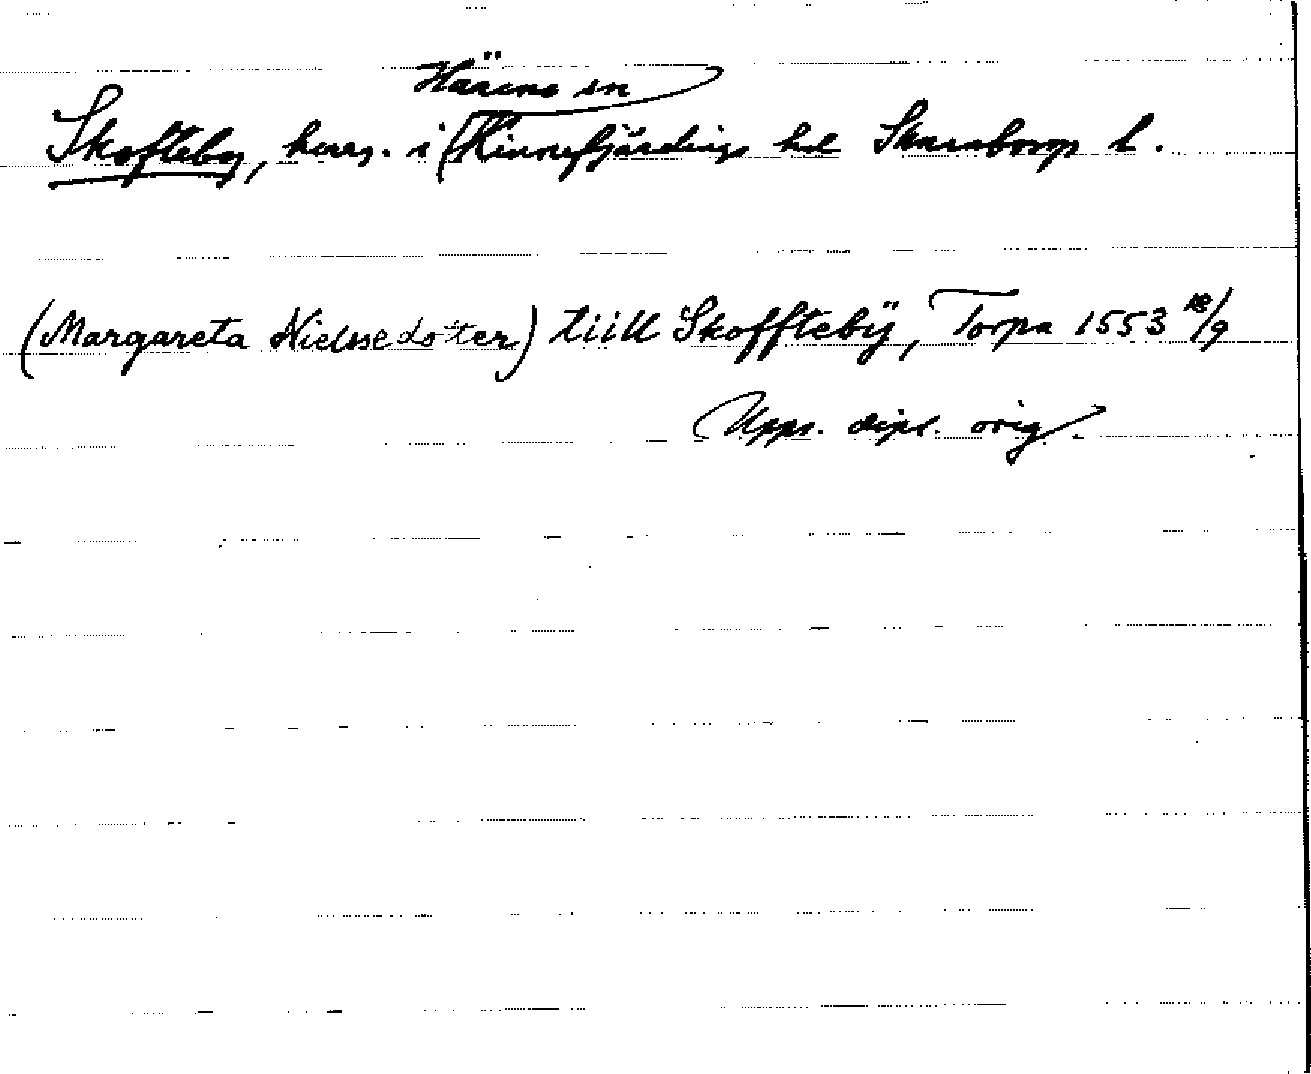 Häärene sn
Skofteby, herrg. i Kinnefjärdings hd Skaraborgs l.
(Margareta Nielssedotter) tiill Skoffteby̋, Torpa 1553 18/9
Upps. dipl. orig.